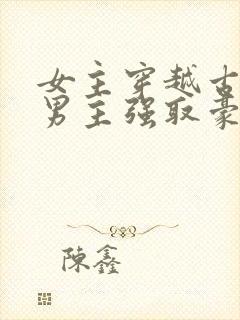 女主穿越古
男主强取豪
陳鑫